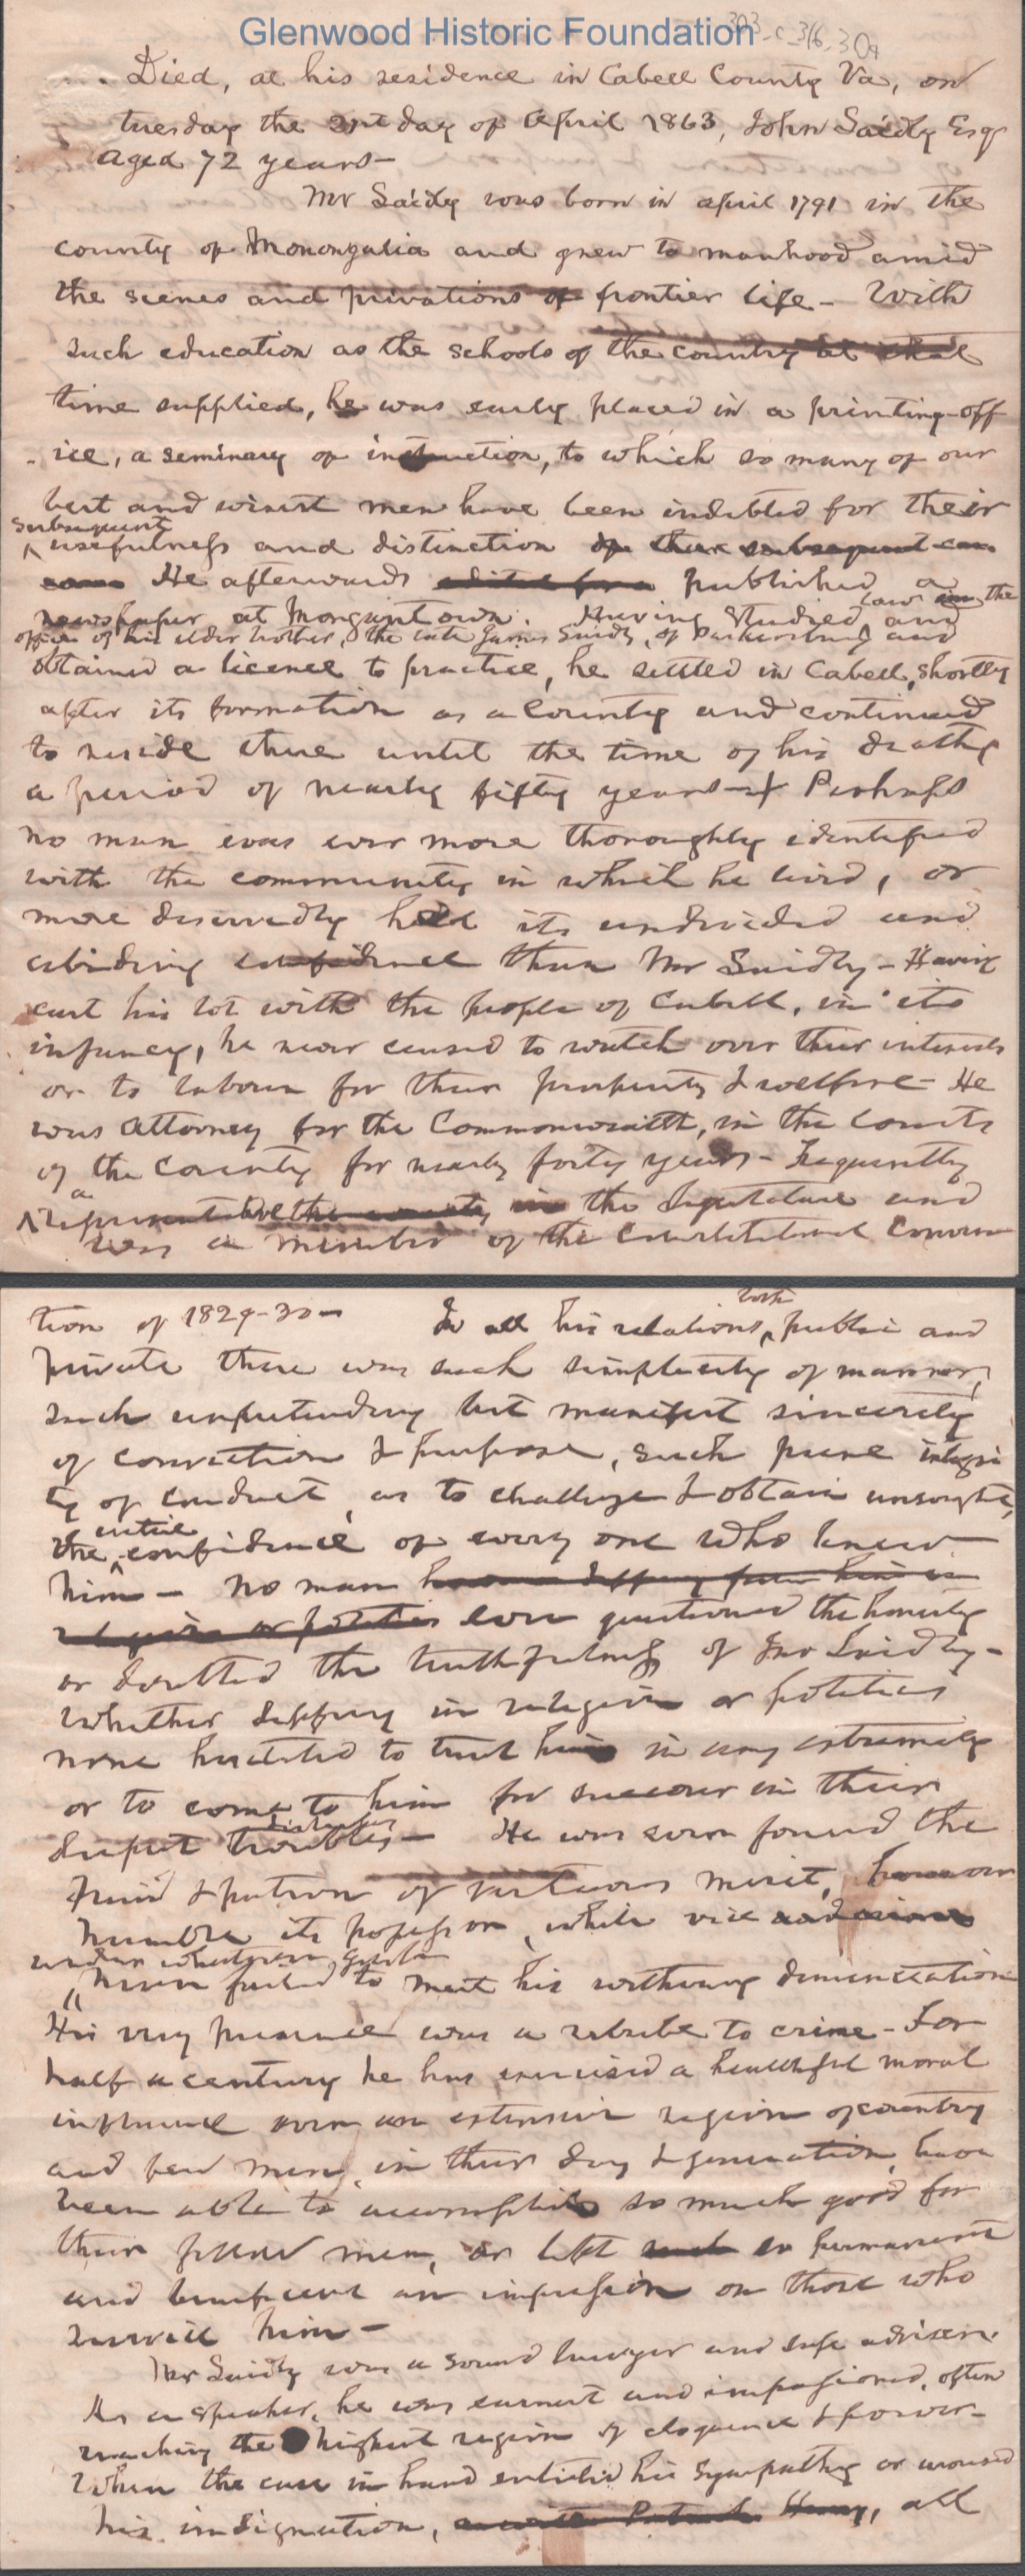 Glenwood Historic Foundation
303_c_3/6_304
Died, at his residence in Cabell County Va, on
tuesday the 21st day of April 1863, John Laidly Esq
aged 72 years—
Mr Laidly was born in april 1791 in the
county of Monongalia and grew to manhood amid
the scenes and privations of frontier life — With
such education as the schools of the country at that
time supplied, he was early placed in a printing-off
ice, a seminary of instruction, to which so many of our
best and wisest men have been indebted for their
subsequent
usefulness and distinction in their subsequent ca
He afterwards published a
newspaper at Morgantown. Having studied law in the
office of his elder brother, the late James Laidly, of Parkersburg and
obtained a licence to practice, he settled in Cabell, shortly
after its formation as a County and continued
to reside there until the time of his death,
a period of nearly fifty years — Perhaps
no man was ever more thoroughly identified
with the community in which he lived, or
more deservedly held its undivided and
abiding confidence than Mr Laidly — Having
cast his lot with the people of Cabell, in its
infancy, he never ceased to watch over their interests
or to labour for their prosperity & welfare — He
was Attorney for the Commonwealth, in the Courts
of the County for nearly forty years — Frequently
a
represented the county in the Legislature and
was a member of the Constitutional Conven
tion of 1829-30—
both
In all his relations, public and
private there was such simplicity of manner,
such unpretending but manifest sincerity
of conviction & purpose, such pure integri
ty of conduct, as to challenge & obtain unsought,
entire
the confidence of every one who knew
him — No man however differing from him in
religion or politics ever questioned the honesty
or doubted the truthfulness of Jno Laidly —
Whether differing in religion or politics
none hesitated to trust him in any extremity
or to come to him for succour in their
deepest troubles —
distresses
He was ever found the
friend & patron of virtuous merit, however
humble its profession, while vice
under whatever guise
never failed to meet his withering denunciation
His very presence was a rebuke to crime — For
half a century he has exercised a healthful moral
influence over an extensive region of country
and few men, in their day & generation, have
been able to accomplish so much good for
their fellow men, or left such so permanent
and beneficent an impression on those who
survive him —
Mr Laidly was a sound lawyer and safe adviser.
As a speaker, he was earnest and impassioned, often
reaching the highest region of eloquence & power —
When the case in hand enlisted his sympathy or aroused
his indignation, as with Patrick Henry, all